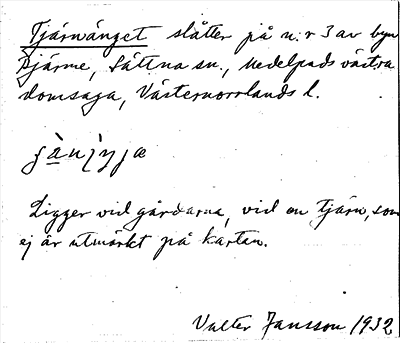 Tjärnvänget slåtter på n:r 3 av byn
Djärme, Sättna sn., Medelpads västra
domsaga, Västernorrlands l.
Ligger vid gårdarna, vid en tjärn, som
ej är utmärkt på kartan.
Valter Jansson 1932